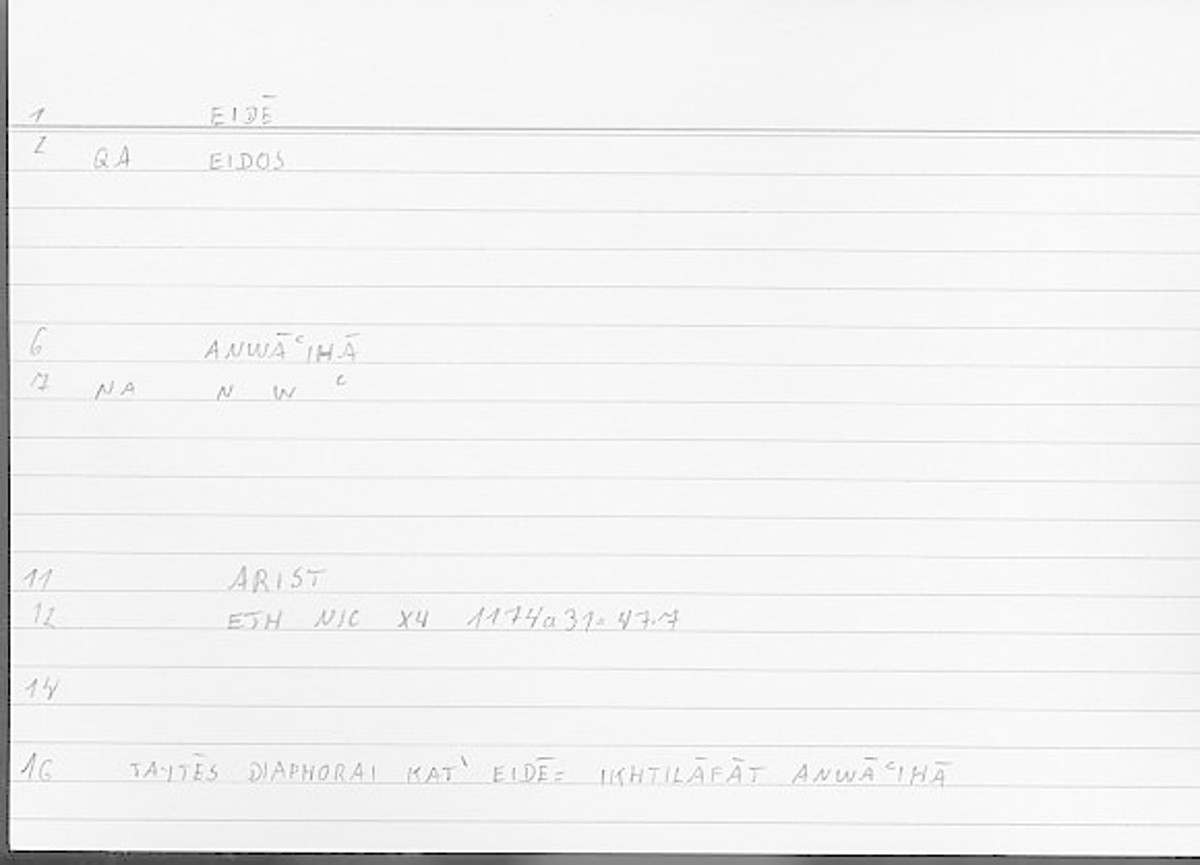 1 EIDĒ
2 QA EIDOS
6 ANWĀʿIHĀ
7 NA N W ʿ
11 ARIST
12 ETH NIC X4 1174a31= 47.7
14
16 TAYTĒS DIAPHORAI KAT' EIDĒ= IKHTILĀFĀT ANWĀʿIHĀ